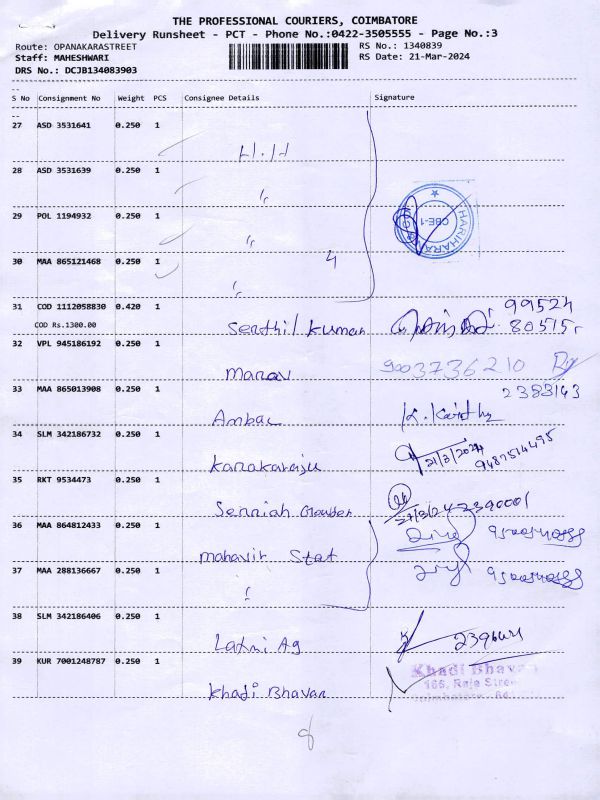 THE PROFESSIONAL COURIERS, COIMBATORE
Delivery Runsheet - PCT - Phone No.:0422-3505555 - Page No.:3
Route: OPANAKARASTREET
RS No.: 1340839
Staff: MAHESHWARI
RS Date: 21-Mar-2024
DRS No.: DCJB134083903
S No Consignment No Weight PCS Consignee Details Signature
27 ASD 3531641 0.250 1
H.H
28 ASD 3531639 0.250 1
"
29 POL 1194932 0.250 1
"
HARIHARA
CBE-1
30 MAA 865121468 0.250 1
4
"
31 COD 1112058830 0.420 1
COD Rs.1300.00
Senthil Kumar 99524
80515
32 VPL 945186192 0.250 1
Manav 9003736210
33 MAA 865013908 0.250 1
2383143
Ambac K.
34 SLM 342186732 0.250 1
Kanakaraju 21/3/2024
9487514495
35 RKT 9534473 0.250 1
Senniah Gounder 21/3/24 2390001
36 MAA 864812433 0.250 1
Mahavir Stat
37 MAA 288136667 0.250 1
"
38 SLM 342186406 0.250 1
Laxmi Ag
39 KUR 7001248787 0.250 1
Khadi Bhavan
Khadi Bhavan
166, Raja Street
8